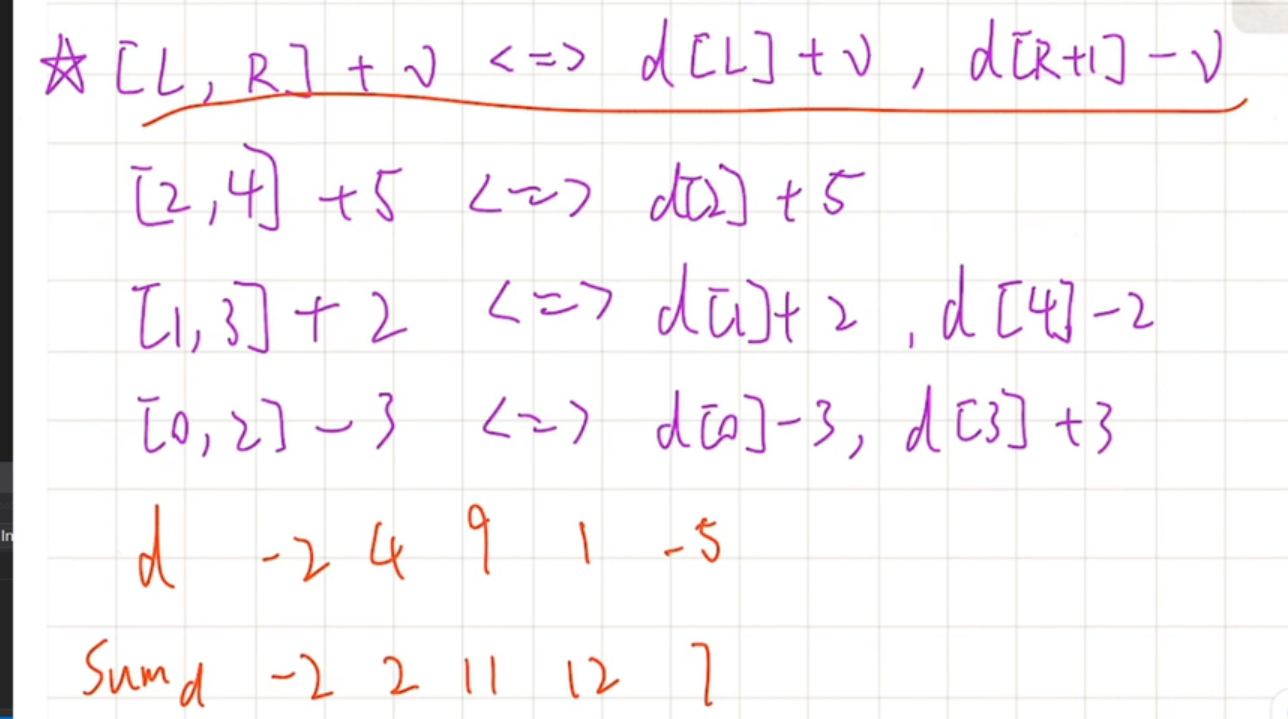 ☆ [L, R] + v <=> d[L] + v, d[R+1] - v
[2,4] +5 <=> d[2] + 5
[1,3] + 2 <=> d[1] + 2, d[4] - 2
[0,2] - 3 <=> d[0] - 3, d[3] + 3
In
d -2 4 9 1 -5
Sum d -2 2 11 12 7